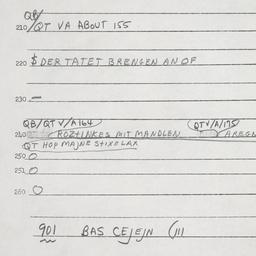 QB/
210/QT VA ABOUT 155
220 $ DER TATET BRENGEN AN OF
230 –
QB/QT V/A 164 QT V/A/175
240 ROZTINKES MIT MANDLEN AREGN
QT HOP MAJNE STIXELAX
250 O
251 O
260 O
901 BAS CEJEJN (III